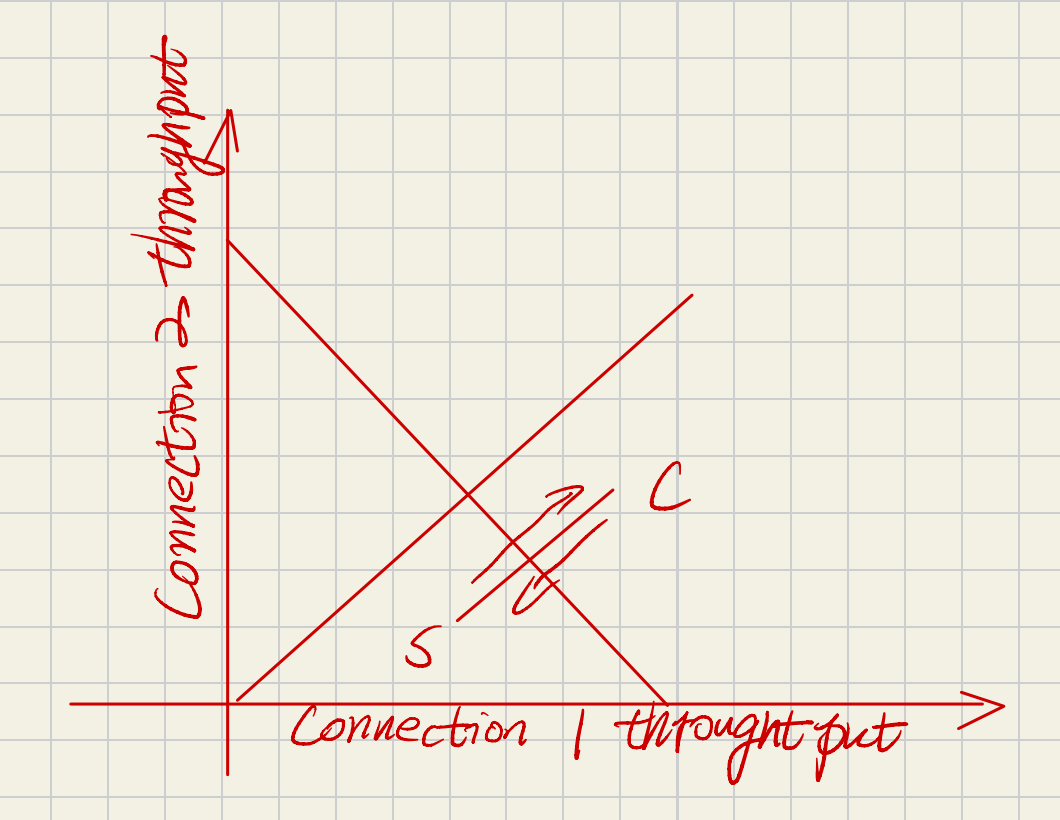 Connection 2 throughput
C
S
Connection 1 throughtput